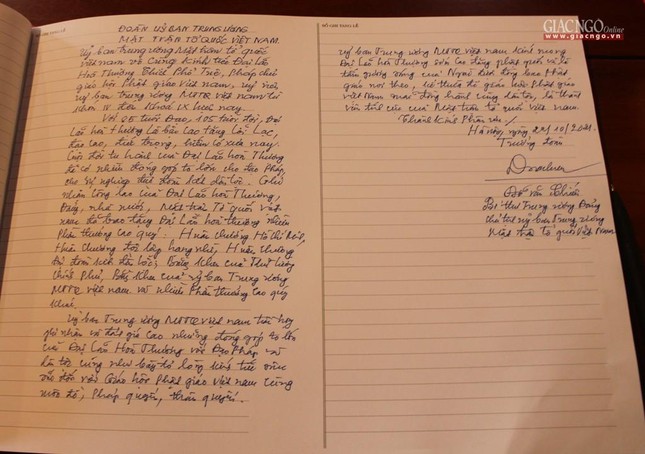 SỔ GHI TANG LỄ
ĐOÀN UỶ BAN TRUNG ƯƠNG
MẶT TRẬN TỔ QUỐC VIỆT NAM
Uỷ ban Trung ương Mặt trận Tổ quốc
Việt Nam vô cùng kính tiếc Đại Lão
Hoà Thượng Thích Phổ Tuệ, Pháp chủ
giáo hội Phật giáo Việt Nam, uỷ viên
uỷ ban Trung ương MTTQ Việt Nam từ
khoá II đến khoá IX hiện nay.
Với 85 tuổi Đạo, 105 tuổi đời, Đại
Lão hoà Thượng là bậc cao tăng Lỗi Lạc,
đạo cao, đức trọng, hiếm có xưa nay.
Cuộc đời tu hành của Đại Lão hoà Thượng
đã có nhiều đóng góp to lớn cho đạo Pháp,
cho sự nghiệp đại đoàn kết dân tộc. Ghi
nhận công lao của Đại Lão hoà Thượng,
Đảng, nhà nước, Mặt trận Tổ quốc Việt
nam đã trao tặng Đại Lão hoà thượng nhiều
phần thưởng cao quý: Huân chương Hồ Chí Minh,
Huân chương độc lập hạng nhì, Huân chương
đại đoàn kết dân tộc, Bằng khen của Thủ tướng
Chính Phủ, Bằng khen của uỷ ban Trung ương
MTTQ Việt nam và nhiều phần thưởng cao quý
khác.
Uỷ ban Trung ương MTTQ Việt nam
ghi nhận và đánh giá cao những đóng góp to lớn
của Đại Lão Hoà Thượng với Đạo Pháp và
dân tộc cũng như bày tỏ lòng
đối với Giáo hội Phật giáo Việt nam cùng
môn đồ, pháp quyến, thân quyến.
GIÁC NGỘ Online
www.giacngo.vn
SỔ GHI TANG LỄ
Uỷ ban Trung ương MTTQ Việt nam kính mong
Đại Lão Hoà Thượng cao đăng phật quốc và là
tấm gương sáng của Người luôn tăng ni Phật
giáo noi theo, kế thừa để giáo hội Phật giáo
Việt Nam mãi đồng hành cùng dân tộc, là thành
viên tích cực của Mặt trận tổ quốc Việt nam.
Thành kính Phân ưu /
Hà nội, ngày 22/10/2021
Trưởng đoàn
Đỗ Văn Chiến
Bí thư Trung ương Đảng
Chủ tịch uỷ ban Trung ương
Mặt trận Tổ quốc Việt Nam